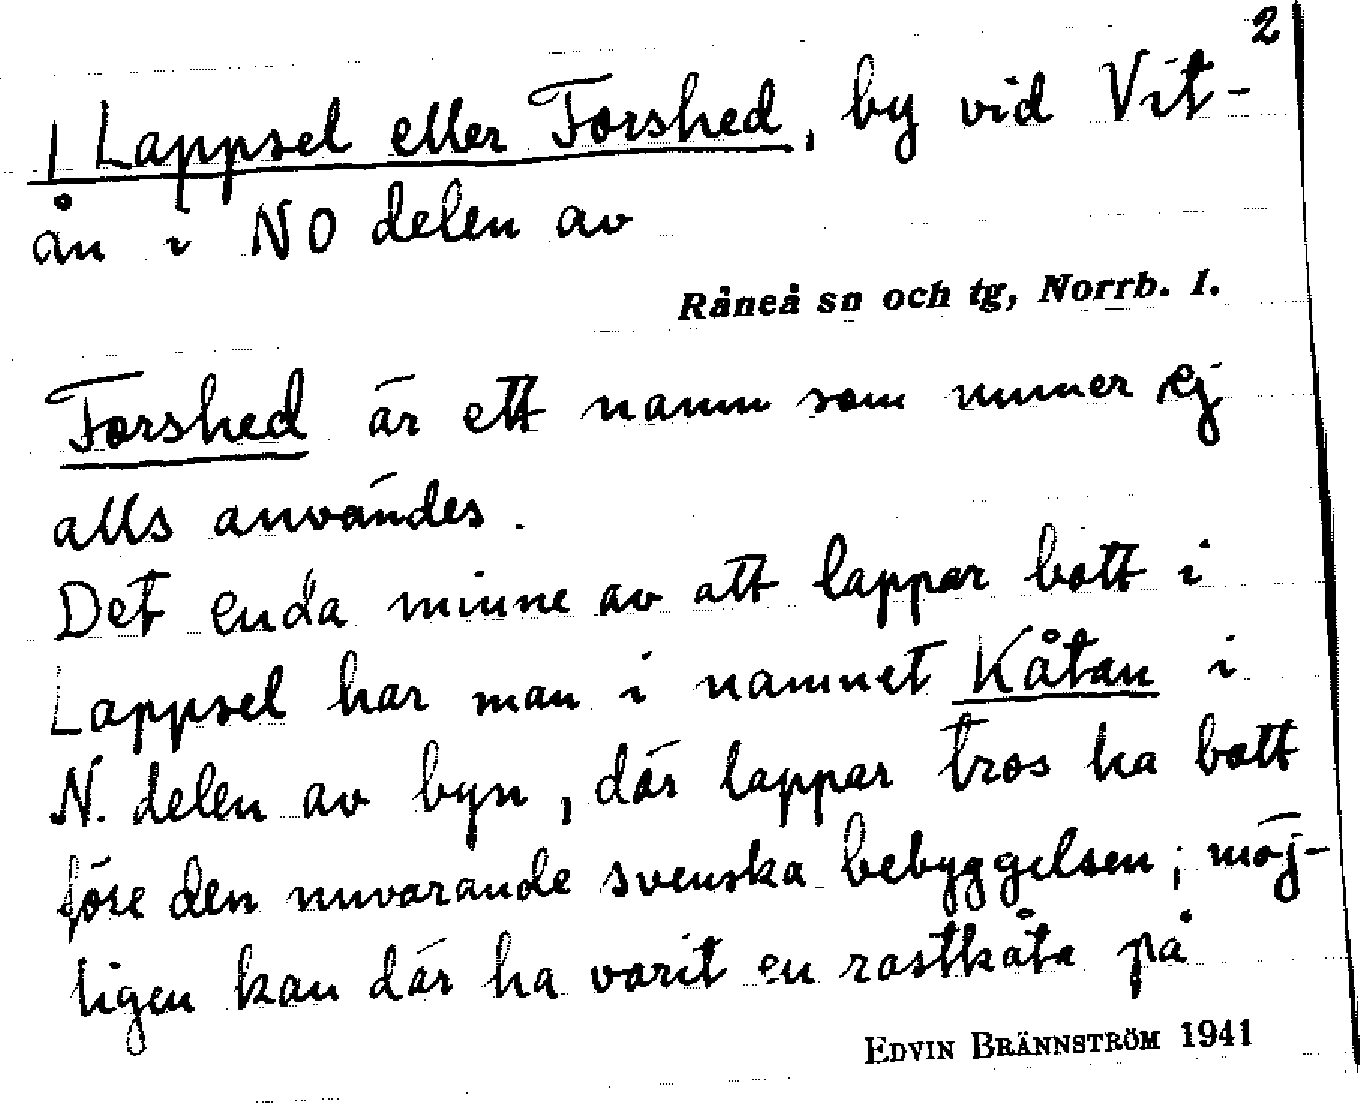 2
1 Lappsel eller Forshed, by vid Vit-
ån i NO delen av
Råneå sn och tg, Norrb. l.
Forshed är ett namn som numer ej
alls användes.
Det enda minne av att lappar bott i
Lappsel har man i namnet Kåtan i
N. delen av byn, där lappar tros ha bott
före den nuvarande svenska bebyggelsen; möj-
ligen kan där ha varit en rastkåta på
EDVIN BRÄNNSTRÖM 1941